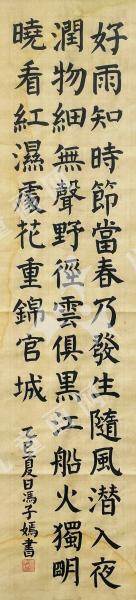 好雨知時節當春乃發生隨風潛入夜
潤物細無聲野徑雲俱黑江船火獨明
曉看紅濕處花重錦官城
乙巳夏日馮子嫣書